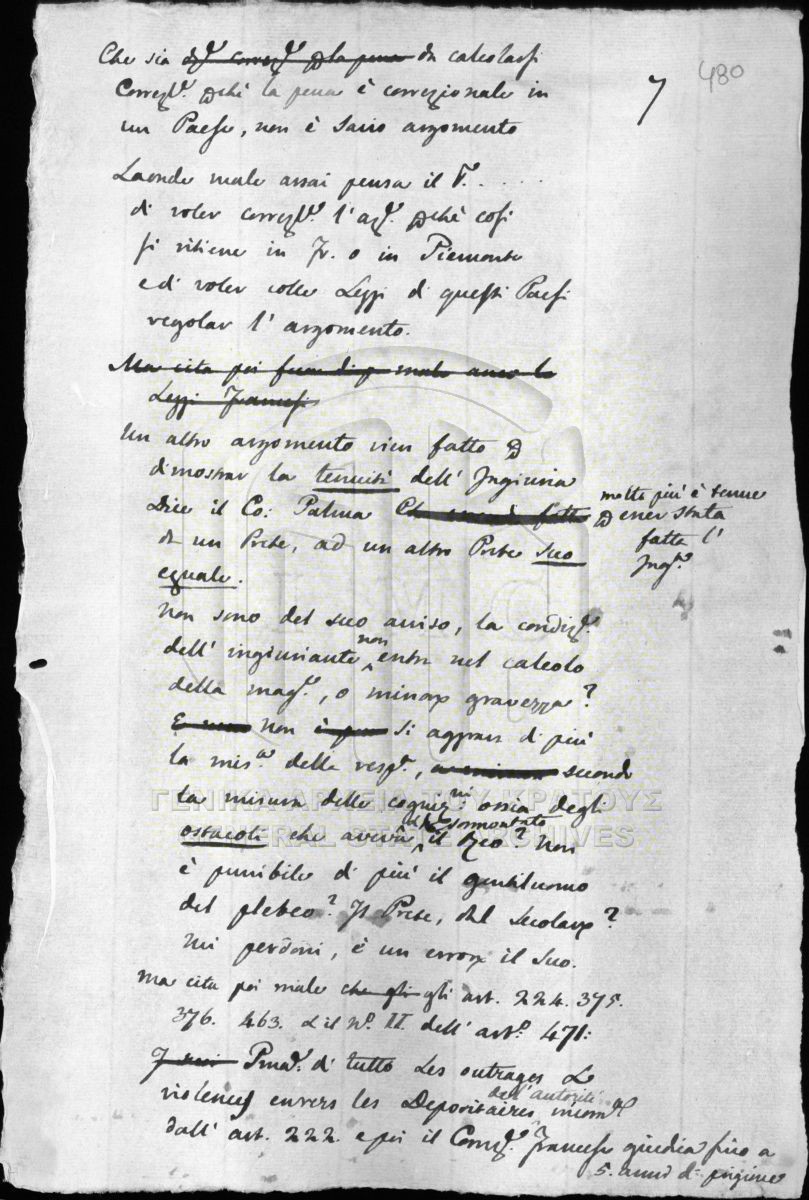 480
7
Che sia da calcolarsi
Correzle. pchè la pena è correzionale in
un Paese, non è savio argomento
Laonde male assai pensa il V. . . . .
di voler correzle. l'aze. pchè così
si ritiene in Fr. o in Piemonte
e di voler colle Leggi di questi Paesi
regolar l'argomento.
Ma cita poi male anco le
Leggi Francesi
Un altro argomento vien fatto p
dimostrar la tenuità dell'Ingiuria
Dice il Co: Palma
molto più è tenue
p esser stata
fatta l'
Inga
da un Prete, ad un altro Prete suo
eguale.
Non sono del suo avviso, la condize.
dell'ingiuriante non entra nel calcolo
della mage., o minor gravezza?
Non si aggrava di più
la misa. della respe., secondo
la misura delle cognizni ossia degli
ostacoli che aveva sormontato il Reo? Non
è punibile di più il gentiluomo
del plebeo? Il Prete, del Secolare?
Mi perdoni, è un error il suo.
Ma cita poi male che gli gli art. 224. 375.
376. 463. & il No. II dell'arto. 471:
Pma. di tutto Les outrages &
violences envers les Depositaires dell'autorità incom
dall'art. 222 e poi il Francese giudica fino a
5. anni di prigione
ΓΕΝΙΚΑ ΑΡΧΕΙΑ ΤΟΥ ΚΡΑΤΟΥΣ
GENERAL STATE ARCHIVES